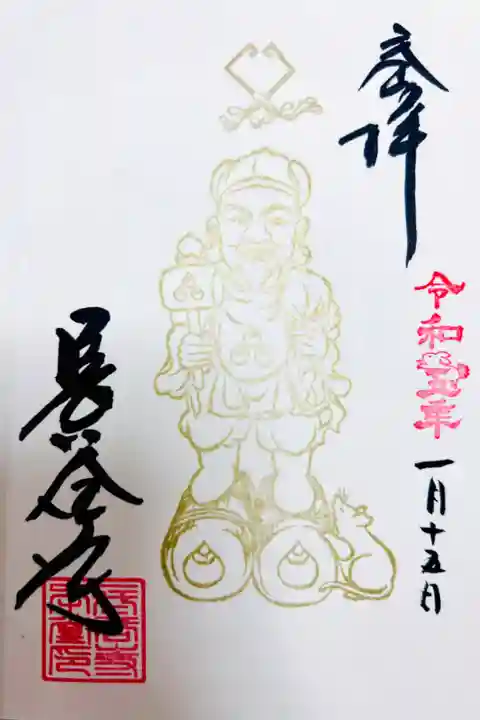 奉拝
令和五年
一月十五日
長谷寺